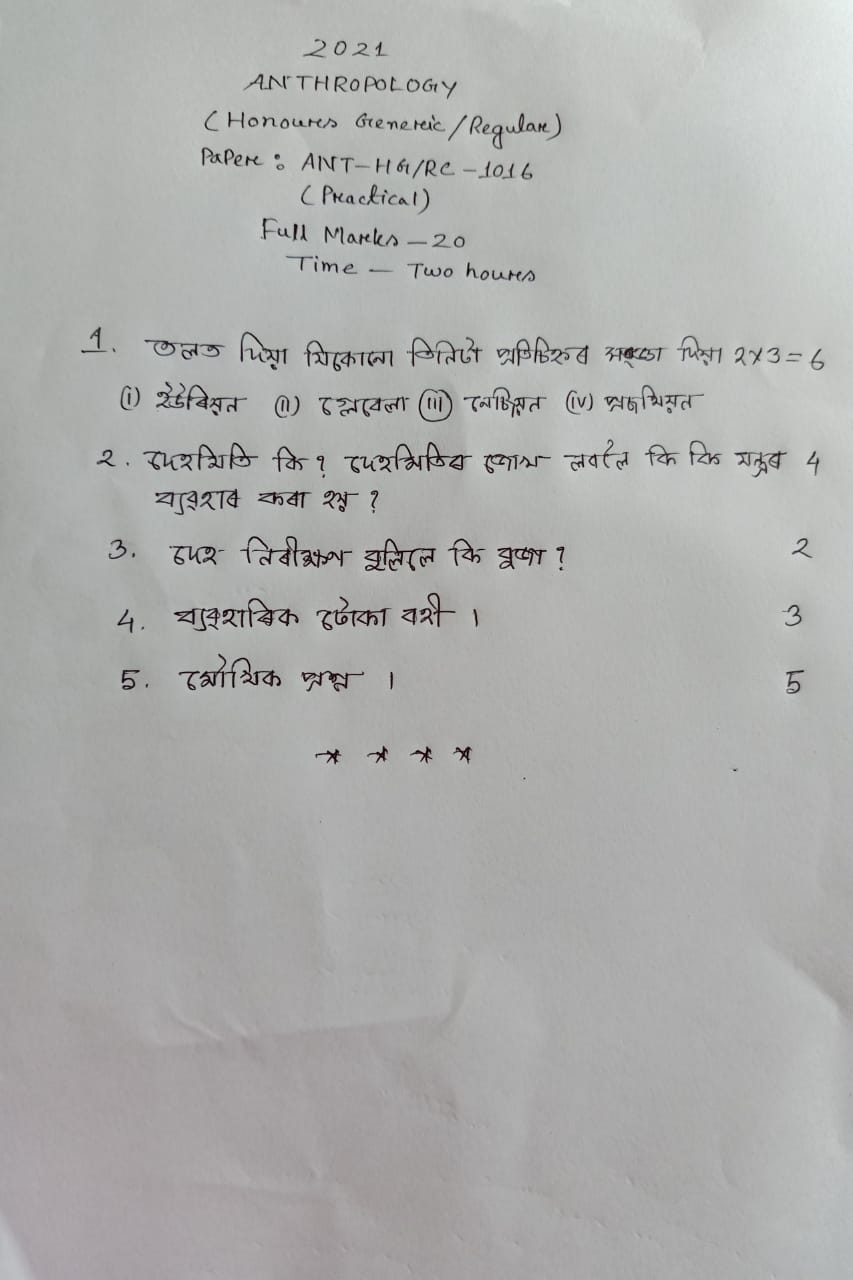 2021
ANTHROPOLOGY
(Honoures Genereic/Regulare)
Papere : ANT-HG/RC-1016
(Practical)
Full Mareks - 20
Time - Two houres
1. তলত দিয়া যিকোনো তিনিটা প্ৰতিচিহ্নৰ সংজ্ঞা দিয়া 2x3=6
(i) ইউৰিয়ন (ii) গ্লেবেলা (iii) নেচিয়ন (iv) প্ৰস্থিয়ন
2. দেহমিতি কি? দেহমিতিৰ জোখ লবলৈ কি কি যন্ত্ৰৰ 4
ব্যৱহাৰ কৰা হয়?
3. দেহ নিৰীক্ষণ বুলিলে কি বুজা? 2
4. ব্যৱহাৰিক টোকা বহী। 3
5. মৌখিক প্ৰশ্ন। 5
* * * *